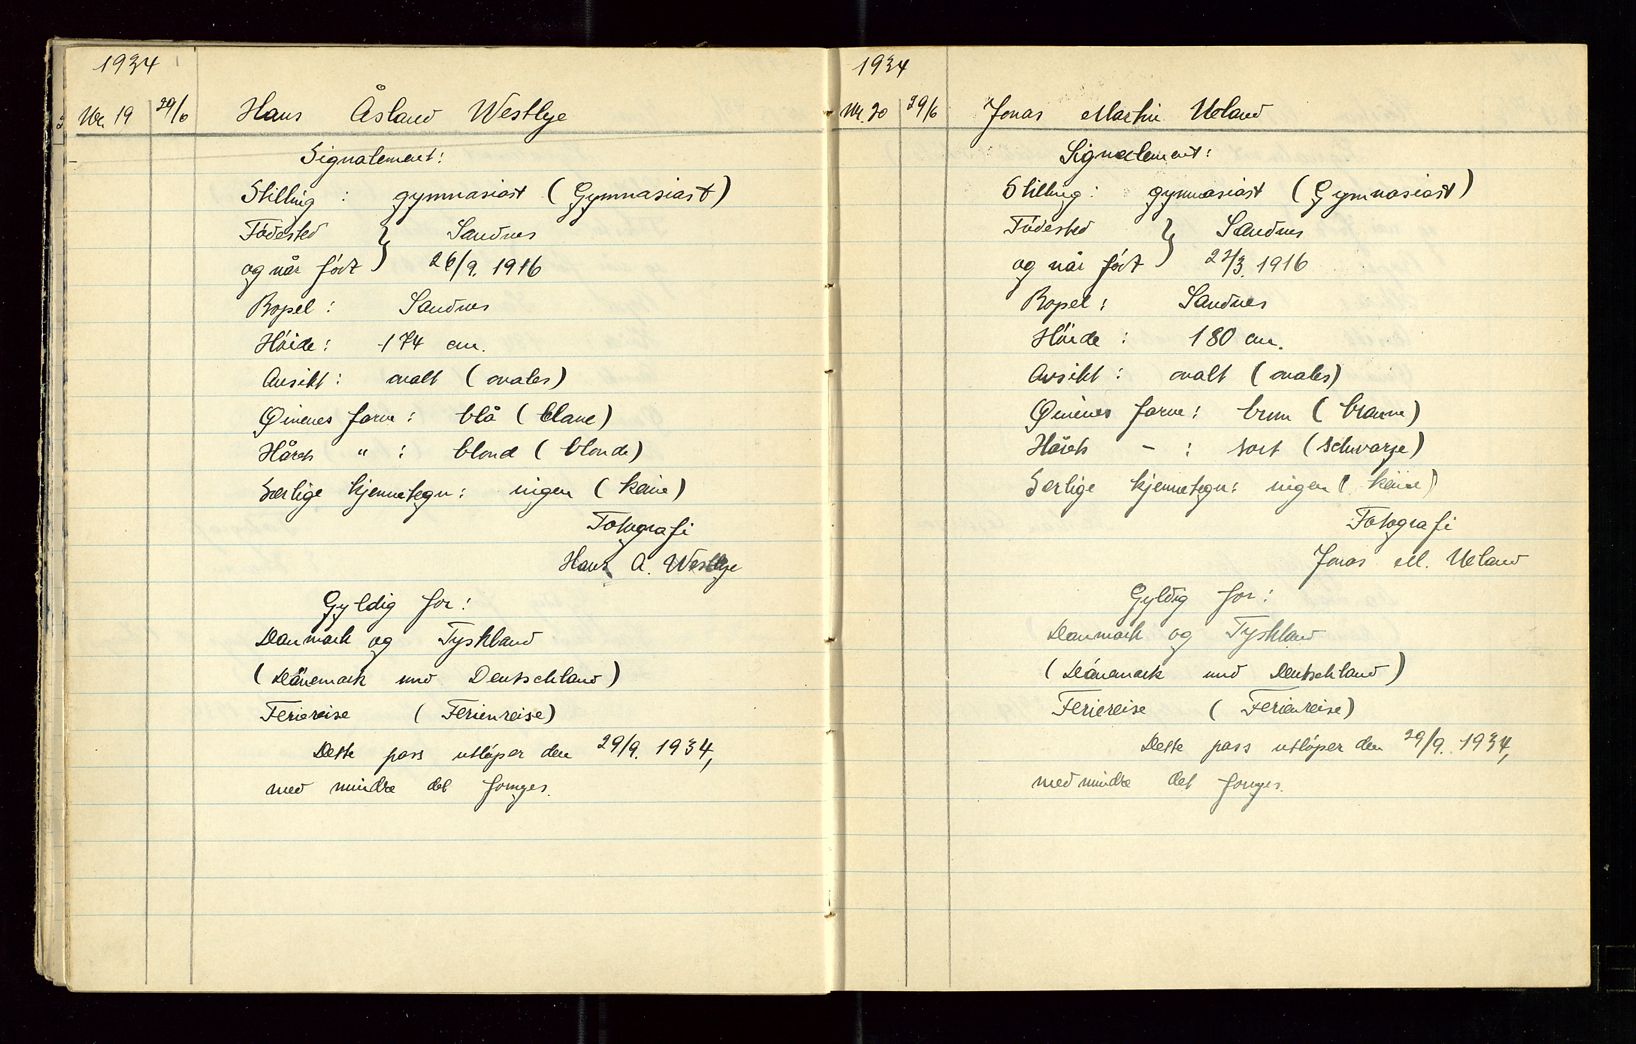 1934
Nr. 19 29/6 Hans Åsland Westlye
Signalement:
Stilling : gymnasiast (Gymnasiast)
Fødested } Sandnes
og når født } 26/9. 1916
Bopel : Sandnes
Høide : 174 cm.
Ansikt : ovalt (ovales)
Øinenes farve : blå (blaue)
Hårets " : blond (blonde)
Særlige kjennetegn : ingen (keine)
Fotografi
Hans A. Westlye
Gyldig for :
Danmark og Tyskland
(Dänemark und Deutschland)
Feriereise (Ferienreise)
Dette pass utløper den 29/9. 1934,
med mindre det fornyes.
1934
Nr. 20 29/6 Jonas Martin Ueland
Signalement :
Stilling : gymnasiast (Gymnasiast)
Fødested } Sandnes
og når født } 27/3. 1916
Bopel : Sandnes
Høide : 180 cm.
Ansikt : ovalt (ovales)
Øinenes farve : brun (braune)
Hårets - : sort (schwarze)
Særlige kjennetegn : ingen (keine)
Fotografi
Jonas M. Ueland
Gyldig for :
Danmark og Tyskland
(Dänemark und Deutschland)
Feriereise (Ferienreise)
Dette pass utløper den 29/9. 1934,
med mindre det fornyes.